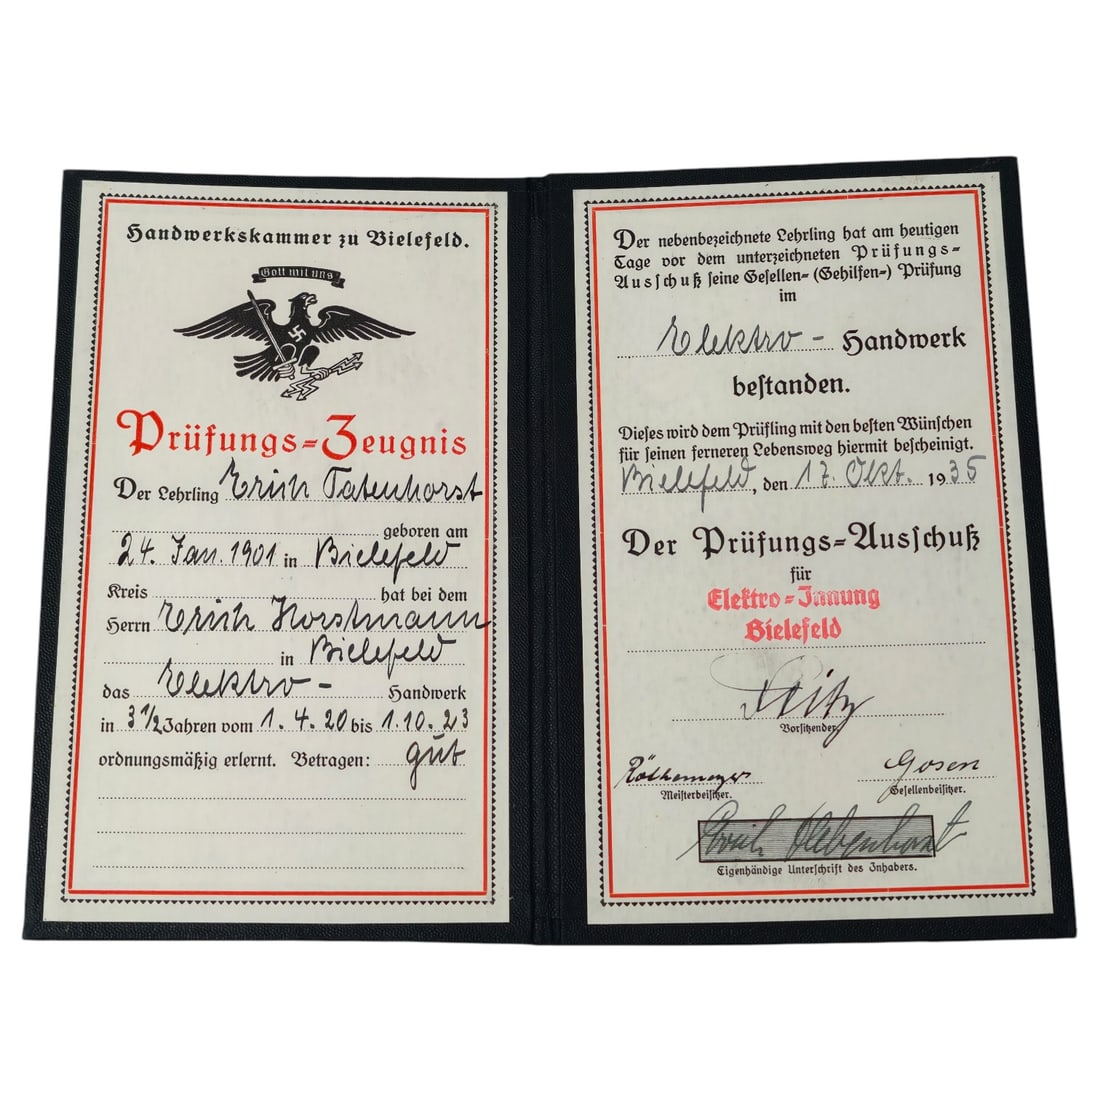 Handwerkskammer zu Bielefeld.
Gott mit uns
Prüfungs=Zeugnis
Der Lehrling Erich Tatenhorst
geboren am
24. Jan. 1901 in Bielefeld
Kreis hat bei dem
Herrn Erich Horstmann
in Bielefeld
das Elektro- Handwerk
in 3 1/2 Jahren vom 1.4.20 bis 1.10.23
ordnungsmäßig erlernt. Betragen: gut
Der nebenbezeichnete Lehrling hat am heutigen
Tage vor dem unterzeichneten Prüfungs-
Ausschuß seine Gesellen- (Gehilfen-) Prüfung
im
Elektro- Handwerk
bestanden.
Dieses wird dem Prüfling mit den besten Wünschen
für seinen ferneren Lebensweg hiermit bescheinigt.
Bielefeld, den 17. Okt. 1935
Der Prüfungs=Ausschuß
für
Elektro=Innung
Bielefeld
Vorsitzender
Meisterbeisitzer.
Gosen
Gesellenbeisitzer.
Erich
Eigenhändige Unterschrift des Inhabers.